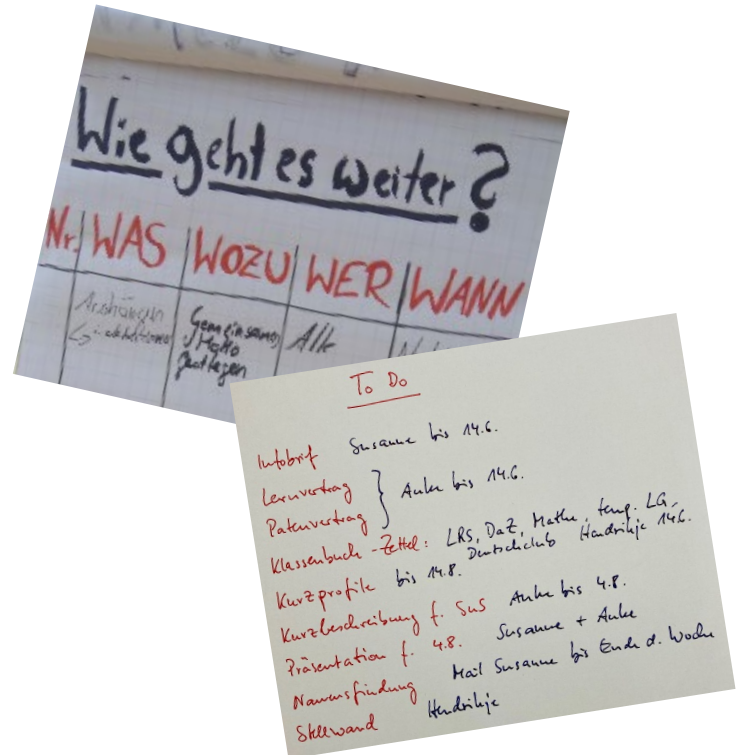 Wie geht es weiter?
Nr. WAS WOZU WER WANN
Gemeinsames
Motto
festlegen
Alle
To Do
Infobrief Susanne bis 14.6.
Lernvertrag
Patenvertrag } Anke bis 14.6.
Klassenbuch-Zettel: LRS, DaZ, Mathe, temp. LG,
Deutschclub Hendrikje 14.6.
Kurzprofile bis 14.8.
Kurzbeschreibung f. SuS Anke bis 4.8.
Präsentation f. 4.8. Susanne + Anke
Namensfindung Mail Susanne bis Ende d. Woche
Stellwand Hendrikje